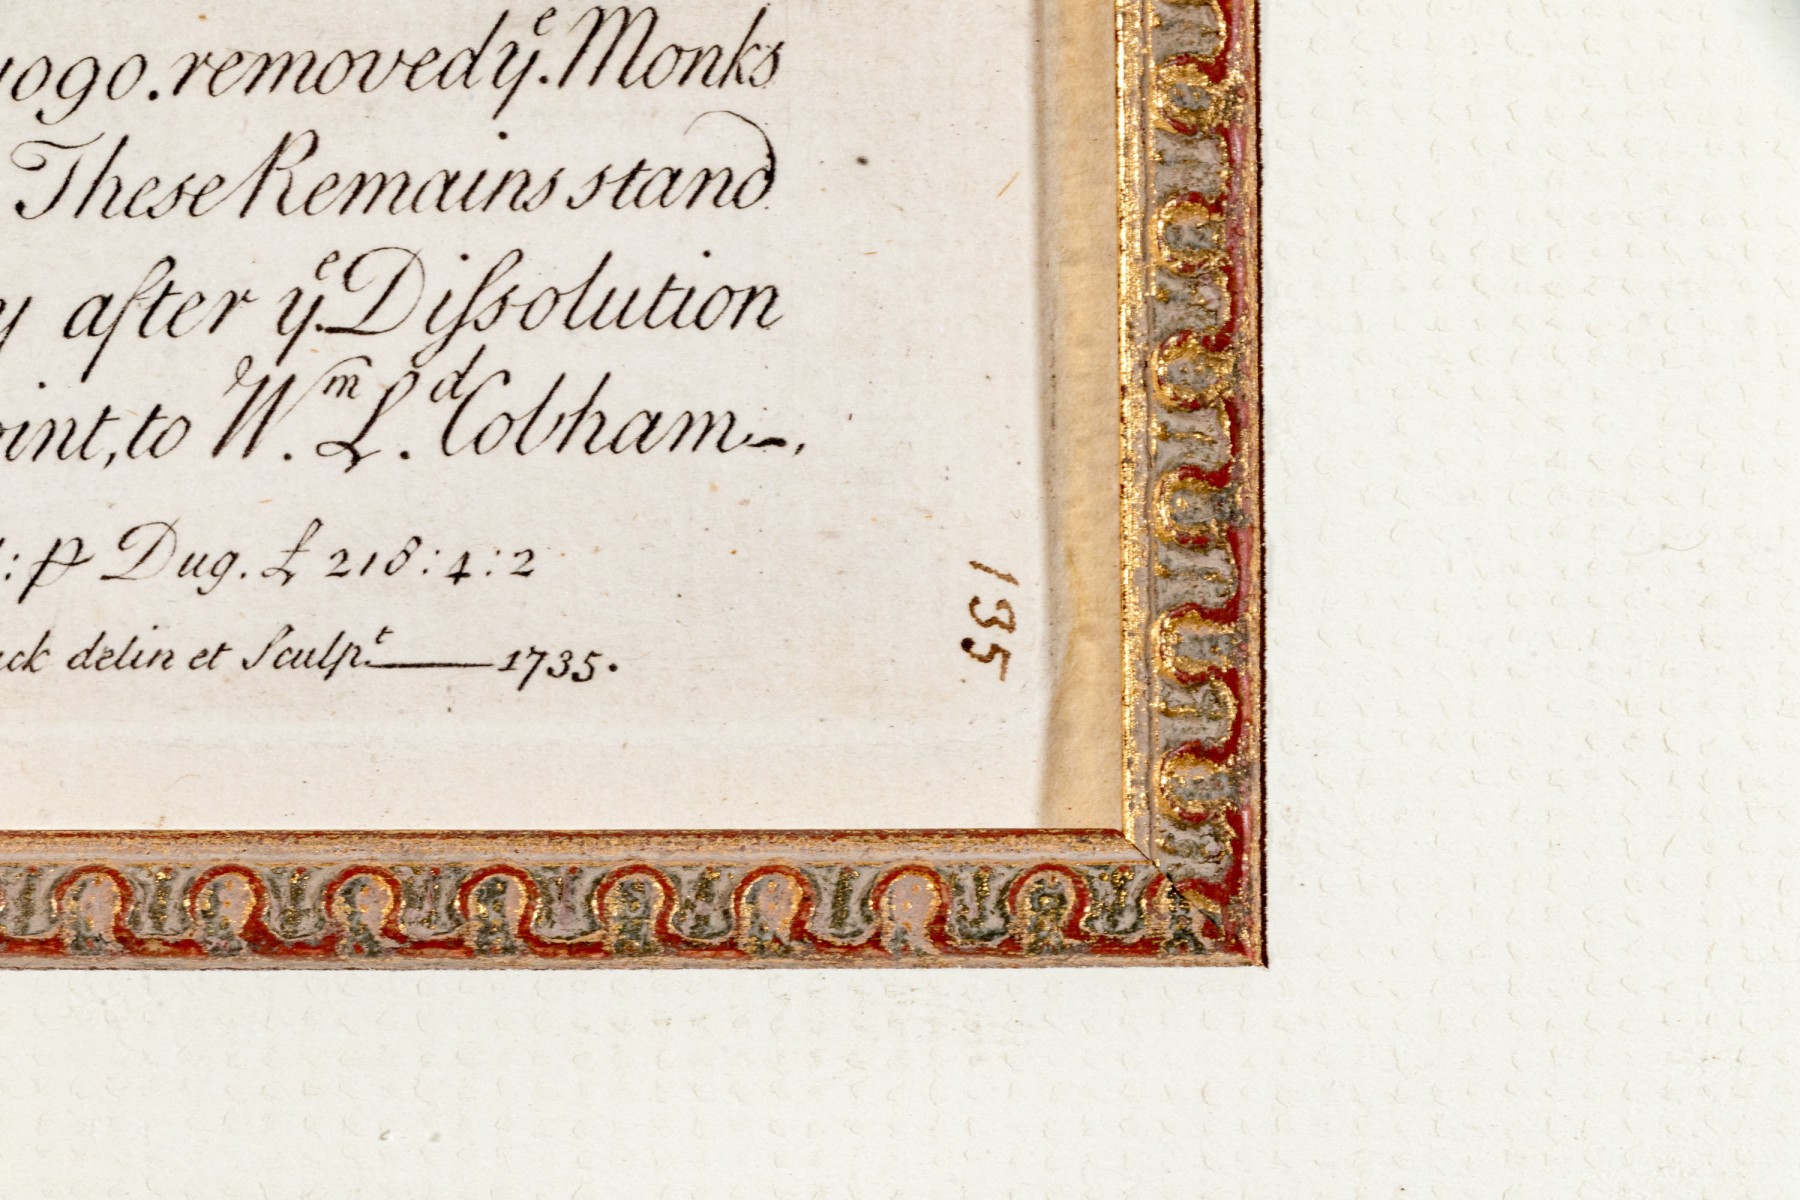 1090. removed yͤ. Monks
These Remains stand
y after yͤ. Diſsolution
oint, to Wᵐ. Lᵈ. Cobham—,
: ꝑ Dug. £ 218 : 4 : 2
ck delin et Sculpᵗ. —— 1735.
135